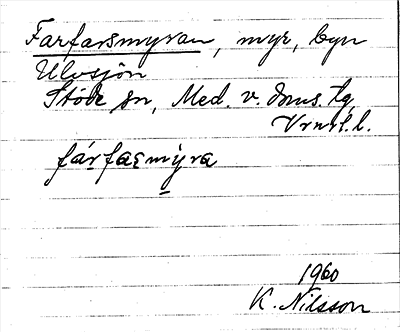 Farfarsmyran, myr, byn
Ulvsjön
Stöde sn, Med. v. doms. tg,
Vrnl. l.
fárfasmỳra
1960
K. Nilsson